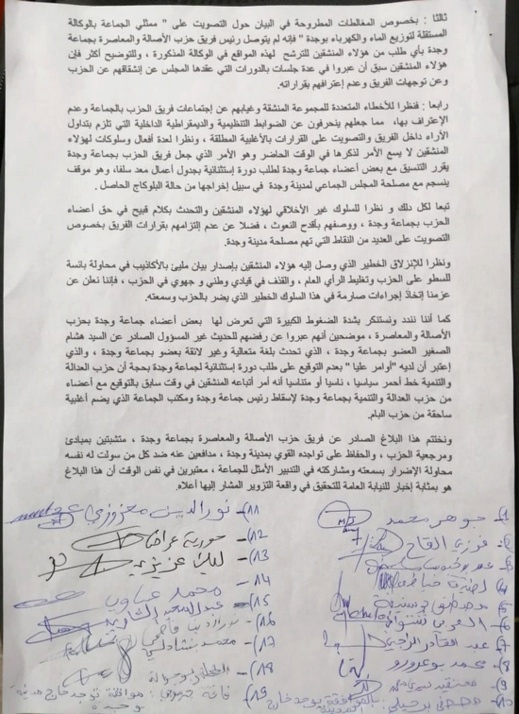 ثالثا : بخصوص المغالطات المطروحة في البيان حول التصويت على " ممثلي الجماعة بالوكالة
المستقلة لتوزيع الماء والكهرباء بوجدة " فإنه لم يتوصل رئيس فريق حزب الأصالة والمعاصرة بجماعة
وجدة بأي طلب من هؤلاء المنشقين للترشح لهذه المواقع في الوكالة المذكورة ، وللتوضيح أكثر فإن
هؤلاء المنشقين سبق أن عبروا في عدة جلسات بالدورات التي عقدها المجلس عن إنشقاقهم عن الحزب
وعن توجهات الفريق وعدم إلتزامهم بقراراته.
رابعا : فنظرا للأخطاء المتعددة للمجموعة المنشقة وغيابهم عن إجتماعات فريق الحزب بالجماعة وعدم
الإعتراف بها، مما جعلهم ينحرفون عن الضوابط التنظيمية والديمقراطية الداخلية التي تلزم بتداول
الأراء داخل الفريق والتصويت على القرارات بالأغلبية المطلقة ، ونظرا لعدة أفعال وسلوكات لهؤلاء
المنشقين لا يسع الأمر لذكرها في الوقت الحاضر وهو الأمر الذي جعل فريق الحزب بجماعة وجدة
يقرر التنسيق مع بعض أعضاء جماعة وجدة لطلب دورة إستثنائية بجدول أعمال معد سلفا، وهو موقف
ينسجم مع مصلحة المجلس الجماعي لمدينة وجدة في سبيل إخراجها من حالة البلوكاج الحاصل .
تبعا لكل ذلك و نظرا للسلوك غير الأخلاقي لهؤلاء المنشقين والتحدث بكلام قبيح في حق أعضاء
الحزب بجماعة وجدة ، ووصفهم بأقدح النعوث ، فضلا عن عدم إلتزامهم بقرارات الفريق بخصوص
التصويت على العديد من النقاط التي تهم مصلحة مدينة وجدة.
ونظرا للإنزلاق الخطير الذي وصل إليه هؤلاء المنشقين بإصدار بيان مليئ بالأكاذيب في محاولة بائسة
للسطو على الحزب وتغليط الرأي العام ، والقذف في قيادي وطني و جهوي في الحزب ، فإننا نعلن عن
عزمنا إتخاذ إجراءات صارمة في هذا السلوك الخطير الذي يضر بالحزب وسمعته.
كما أننا نندد ونستنكر بشدة الضغوط الكبيرة التي تعرض لها بعض أعضاء جماعة وجدة بحزب
الأصالة والمعاصرة ، موضحين أنهم عبروا عن رفضهم للحديث غير المسؤول الصادر عن السيد هشام
الصغير العضو بجماعة وجدة ، الذي تحدث بلغة متعالية وغير لائقة بعضو بجماعة وجدة ، والذي
إعتبر أن لديه "أوامر عليا " بعدم التوقيع على طلب دورة إستثنائية لجماعة وجدة بحجة أن حزب العدالة
والتنمية خط أحمر سياسيا ، ناسيا أو متناسيا أنه أمر أتباعه المنشقين في وقت سابق بالتوقيع مع أعضاء
من حزب العدالة والتنمية بجماعة وجدة لإسقاط رئيس جماعة وجدة ومكتب الجماعة الذي يضم أغلبية
ساحقة من حزب البام.
ونختتم هذا البلاغ الصادر عن فريق حزب الأصالة والمعاصرة بجماعة وجدة ، متشبتين بمبادئ
ومرجعية الحزب ، والحفاظ على تواجده القوي بمدينة وجدة ، مدافعين عنه ضد كل من سولت له نفسه
محاولة الإضرار بسمعته ومشاركته في التدبير الأمثل للجماعة ، معتبرين في نفس الوقت أن هذا البلاغ
هو بمثابة إخبار للنيابة العامة للتحقيق في واقعة التزوير المشار إليها أعلاه.
1- جوهر محمد
2- فوزي
3- عمر
4- لطيفة
5- مصطفى
6- العربي
7- عبد القادر
8- محمد بوعرورو
9-
10- مصطفى
11- نور الدين
12- حورية
13- ليلى عزيزي
14- محمد
15- عبد
16- نور الدين
17- محمد
18-
19-